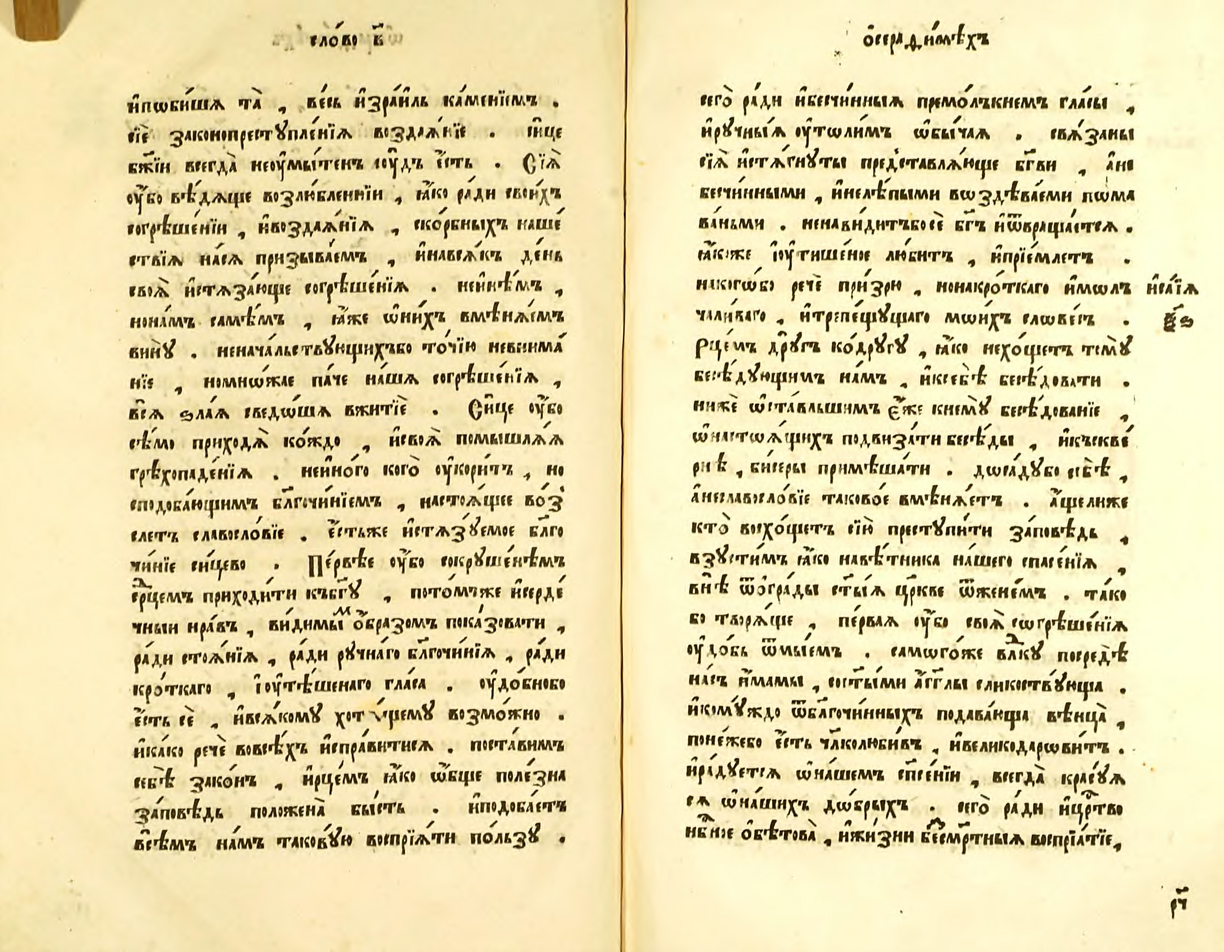 сло́во в҃
и҆пѡби́шѧ та̀ , ве́сь і҆зра́иль ка́менїемъ .
сїѐ законопрестꙋпле́нїѧ воздаѧ́нїе . си́це
бж҃їи всегда̀ неꙋмы́тенъ сꙋ́дъ є҆́сть . Сїѧ̀
ᲂу҆́бо вѣ́дѧще возлю́бленнїи , ꙗ҆́ко ра́ди свои́хъ
согрѣше́нїи , и҆воздаѧ́нїѧ , ско́рбныхъ наше́
ствїѧ на́сѧ призыва́емъ , и҆навсѧ́къ де́нь
своѧ̀ и҆стѧза́юще согрѣше́нїѧ . неи҆нѣ́мъ ,
нона́мъ самѣ́мъ , ꙗ҆́же ѡ҆ни́хъ вмѣнѧ́емъ
винꙋ̀ . ненача́льствꙋющихъбо то́чїю невнима́
нїе , номно́жае па́че на́шѧ согрѣше́нїѧ ,
всѧ̀ ѕла́ѧ сведѡ́шѧ вжитїѐ . Си́це ᲂу҆́бо
сѣ́мо приходѧ̀ ко́ждо , и҆своѧ̀ помышлѧ́ѧ
грѣхопаде́нїѧ . неи҆но́го кого̀ ᲂу҆кори́тъ , но
сподоба́ющимъ бл҃гочи́нїемъ , настоѧ́щее во́з
слетъ славосло́вїе . є҆́стьже и҆стѧзꙋ́емое бл҃го
чи́нїе си́цево . Пе́рвѣе ᲂу҆́бо сокрꙋше́нѣмъ
се́рцемъ приходи́ти къбг҃ꙋ , пото́мъже и҆серде́
чныи нра́въ , ви́димымъ ѻ҆́бразомъ показова́ти ,
ра́ди стоѧ́нїѧ , ра́ди рꙋчна́го бл҃гочи́нїѧ , ра́ди
кро́ткаго , і҆ᲂу҆тѣ́шенаго гла́са . ᲂу҆до́бнобо
є҆́сть сѐ , и҆всѧ́комꙋ хотѧ́щемꙋ возмо́жно .
и҆ка́ко речѐ вовсѣ́хъ и҆спра́витисѧ . поста́вимъ
себѣ̀ зако́нъ , и҆рце́мъ ꙗ҆́ко ѡ҆́бще поле́зна
за́повѣдь положена̀ бы́сть . и҆подоба́етъ
всѣ́мъ на́мъ такову́ю воспрїѧ́ти по́льзꙋ .
ѻ҆серади́мѣхъ
сего̀ ра́ди и҆бесчи́нныѧ премо́лъкнемъ гла́сы ,
и҆рꙋчны́ѧ ᲂу҆толи́мъ ѡ҆бы́чаѧ . свѧ́заны
сїѧ̀ и҆стѧ́гнꙋты представлѧ́юще бг҃ви , а҆не
бесчи́нными , и҆нелѣ́пыми воздѣ́ваеми пома
ва́ньми . ненави́дитъбосѐ бг҃ъ и҆ѿвраща́етсѧ .
ꙗ҆́коже і҆ᲂу҆тише́ное лю́битъ , и҆прїе́млетъ .
накого́ѡбо речѐ при́зрю , нонакро́ткаго и҆мо́лъ
и҆са́їѧ
чали́ваго , и҆трепе́щꙋщаго мои́хъ слове́съ .
ѯ҃ѕ
Рце́мъ дрꙋ́гъ ко́дрꙋгꙋ , ꙗ҆́ко нехо́щетъ томꙋ̀
бесѣ́дꙋющимъ на́мъ , и҆ксебѣ̀ бесѣ́довати .
нижѐ ѡ҆ста́вльшимъ є҆́же кнемꙋ̀ бесѣ́дованїе ,
ѡ҆настоѧ́щихъ подвиза́ти бесѣ́ды , и҆къскве́
рнѣ , би́серы примѣша́ти . доса́дꙋбо себѣ̀ ,
а҆неславосло́вїе таково́е вмѣнѧ́етъ . а҆́щелиже
кто̀ восхо́щетъ сїю̀ престꙋпи́ти за́повѣдь ,
взꙋ́стимъ ꙗ҆́ко навѣ́тника на́шего спасе́нїѧ ,
внѣ̀ ѿѻ҆гра́ды ст҃ы́ѧ цр҃кве ѿжене́мъ . та́ко
бо творѧ́ще , пе́рваѧ ᲂу҆́бо своѧ̀ согрѣше́нїѧ
ᲂу҆до́бь ѿмы́емъ . самого́же влⷣкꙋ посредѣ̀
на́съ и҆́мамы , сост҃ы́ми а҆́гг҃лы сликоствꙋ́юща .
и҆комꙋ́ждо ѿбл҃гочи́нныхъ подава́юща вѣнца̀ ,
поне́жебо є҆́сть чл҃колюби́въ , и҆великодарови́тъ .
и҆ра́дꙋетсѧ ѡ҆на́шемъ сп҃се́нїи , всегда̀ красꙋ́ѧ
сѧ ѡ҆на́шихъ до́брыхъ . сего̀ ра́ди и҆црⷭ҇тво
нбⷭ҇ное ѻ҆бѣтова̀ , и҆жи́зни бесме́ртныѧ воспрїѧ́тїе ,
рч҃